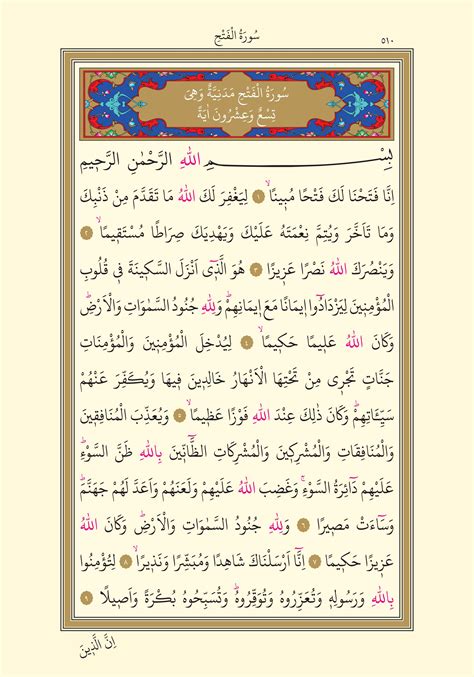 سُورَةُ الْفَتْحِ
٥١٠
سُورَةُ الْفَتْحِ مَدَنِيَّةٌ وَهِيَ
تِسْعٌ وَعِشْرُونَ اٰيَةً
بِسْمِ اللّٰهِ الرَّحْمٰنِ الرَّح۪يمِ
اِنَّا فَتَحْنَا لَكَ فَتْحًا مُب۪ينًاۙ ١ لِيَغْفِرَ لَكَ اللّٰهُ مَا تَقَدَّمَ مِنْ ذَنْبِكَ
وَمَا تَاَخَّرَ وَيُتِمَّ نِعْمَتَهُ عَلَيْكَ وَيَهْدِيَكَ صِرَاطًا مُسْتَق۪يمًاۙ ٢
وَيَنْصُرَكَ اللّٰهُ نَصْرًا عَز۪يزًا ٣ هُوَ الَّذ۪ٓي اَنْزَلَ السَّك۪ينَةَ ف۪ي قُلُوبِ
الْمُؤْمِن۪ينَ لِيَزْدَادُٓوا ا۪يمَانًا مَعَ ا۪يمَانِهِمْۜ وَلِلّٰهِ جُنُودُ السَّمٰوَاتِ وَالْاَرْضِۜ
وَكَانَ اللّٰهُ عَل۪يمًا حَك۪يمًاۙ ٤ لِيُدْخِلَ الْمُؤْمِن۪ينَ وَالْمُؤْمِنَاتِ
جَنَّاتٍ تَجْر۪ي مِنْ تَحْتِهَا الْاَنْهَارُ خَالِد۪ينَ ف۪يهَا وَيُكَفِّرَ عَنْهُمْ
سَيِّـَٔاتِهِمْۜ وَكَانَ ذٰلِكَ عِنْدَ اللّٰهِ فَوْزًا عَظ۪يمًاۙ ٥ وَيُعَذِّبَ الْمُنَافِق۪ينَ
وَالْمُنَافِقَاتِ وَالْمُشْرِك۪ينَ وَالْمُشْرِكَاتِ الظَّٓانّ۪ينَ بِاللّٰهِ ظَنَّ السَّوْءِۜ
عَلَيْهِمْ دَٓائِرَةُ السَّوْءِۚ وَغَضِبَ اللّٰهُ عَلَيْهِمْ وَلَعَنَهُمْ وَاَعَدَّ لَهُمْ جَهَنَّمَۜ
وَسَٓاءَتْ مَص۪يرًا ٦ وَلِلّٰهِ جُنُودُ السَّمٰوَاتِ وَالْاَرْضِۜ وَكَانَ اللّٰهُ
عَز۪يزًا حَك۪يمًا ٧ اِنَّٓا اَرْسَلْنَاكَ شَاهِدًا وَمُبَشِّرًا وَنَذ۪يرًاۙ ٨ لِتُؤْمِنُوا
بِاللّٰهِ وَرَسُولِه۪ وَتُعَزِّرُوهُ وَتُوَقِّرُوهُۜ وَتُسَبِّحُوهُ بُكْرَةً وَاَص۪يلًا ٩
اِنَّ الَّذ۪ينَ